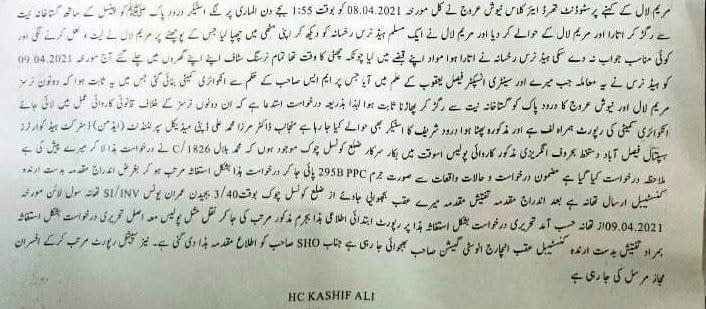 مریم لال کے کہنے پر سٹوڈنٹ تھرڈ ایئر کلاس نیوش عروج نے کل مورخہ 08.04.2021 کو بوقت 1:55 بجے دن الماری پر لگے اسٹیکر درود پاک ﷺ کو پینسل کے ساتھ گستاخانہ نیت
سے رگڑ کر اتارا اور مریم لال کے حوالے کر دیا اور مریم لال نے ایک مسلم ہیڈ نرس رخسانہ کو دیکھ کر اپنی مٹھی میں چھپا لیا جس کے پوچھنے پر مریم لال نے لیت و لعل کرنے لگی اور
کوئی مناسب جواب نہ دے سکی ہیڈ نرس رخسانہ نے اترا ہوا مواد اپنے قبضے میں لیا چونکہ چھٹی کا وقت تھا تمام نرسنگ سٹاف اپنے اپنے گھروں میں چلے گئے آج مورخہ 09.04.2021
کو ہیڈ نرس نے یہ معاملہ جب میرے اور سینٹری انسپکٹر فیصل یعقوب کے علم میں آیا جس پر ایم ایس صاحب کے حکم سے انکوائری کمیٹی بنائی گئی جس میں یہ ثابت ہوا کہ دونوں نرسز
مریم لال اور نیوش عروج کا درود پاک کو گستاخانہ نیت سے رگڑ کر پھاڑنا ثابت ہوا لہذا بذریعہ درخواست استدعا ہے کہ ان دونوں نرسز کے خلاف قانونی کاروائی عمل میں لائی جائے
انکوائری کمیٹی کی رپورٹ ہمراہ لف ہے اور مذکورہ پھٹا ہوا درود شریف کا اسٹیکر بھی حوالے کیا جا رہا ہے منجانب ڈاکٹر مرزا محمد علی ڈپٹی میڈیکل سپرنٹنڈنٹ (ایڈمن) ڈسٹرکٹ ہیڈ کوارٹرز
ہسپتال فیصل آباد دستخط بحروف انگریزی مذکور کاروائی پولیس اسوقت میں بکار سرکار ضلع کونسل چوک موجود ہوں کہ محمد بلال C/1826 نے درخواست ہذا لا کر میرے پیش کی ہے
ملاحظہ درخواست کیا گیا ہے مضمون درخواست و حالات واقعات سے صورت جرم 295B PPC پائی جا کر درخواست ہذا بشکل استغاثہ مرتب ہو کر بغرض اندراج مقدمہ بدست ارندہ
کنسٹیبل ارسال تھانہ ہے بعد اندراج مقدمہ تفتیش مقدمہ میرے عقب بھجوائی جائے از ضلع کونسل چوک بوقت 3/40 بجیدن عمران یونس SI/INV تھانہ سول لائن مورخہ
09.04.2021 از تھانہ حسب آمد تحریری درخواست بشکل استغاثہ ہذا پر رپورٹ ابتدائی اطلاعی ہذا بجرم مذکور مرتب کی جا کر نقل مثل پولیس معہ اصل تحریری درخواست بشکل استغاثہ
بمراد تفتیش بدست ارندہ کنسٹیبل عقب انچارج انوسٹی گیشن صاحب بھجوائی جا رہی ہے جناب SHO صاحب کو اطلاع مقدمہ ہذا دی گئی ہے۔ نیز سپیشل رپورٹ مرتب کر کے افسران
مجاز مرسل کی جا رہی ہے
HC KASHIF ALI